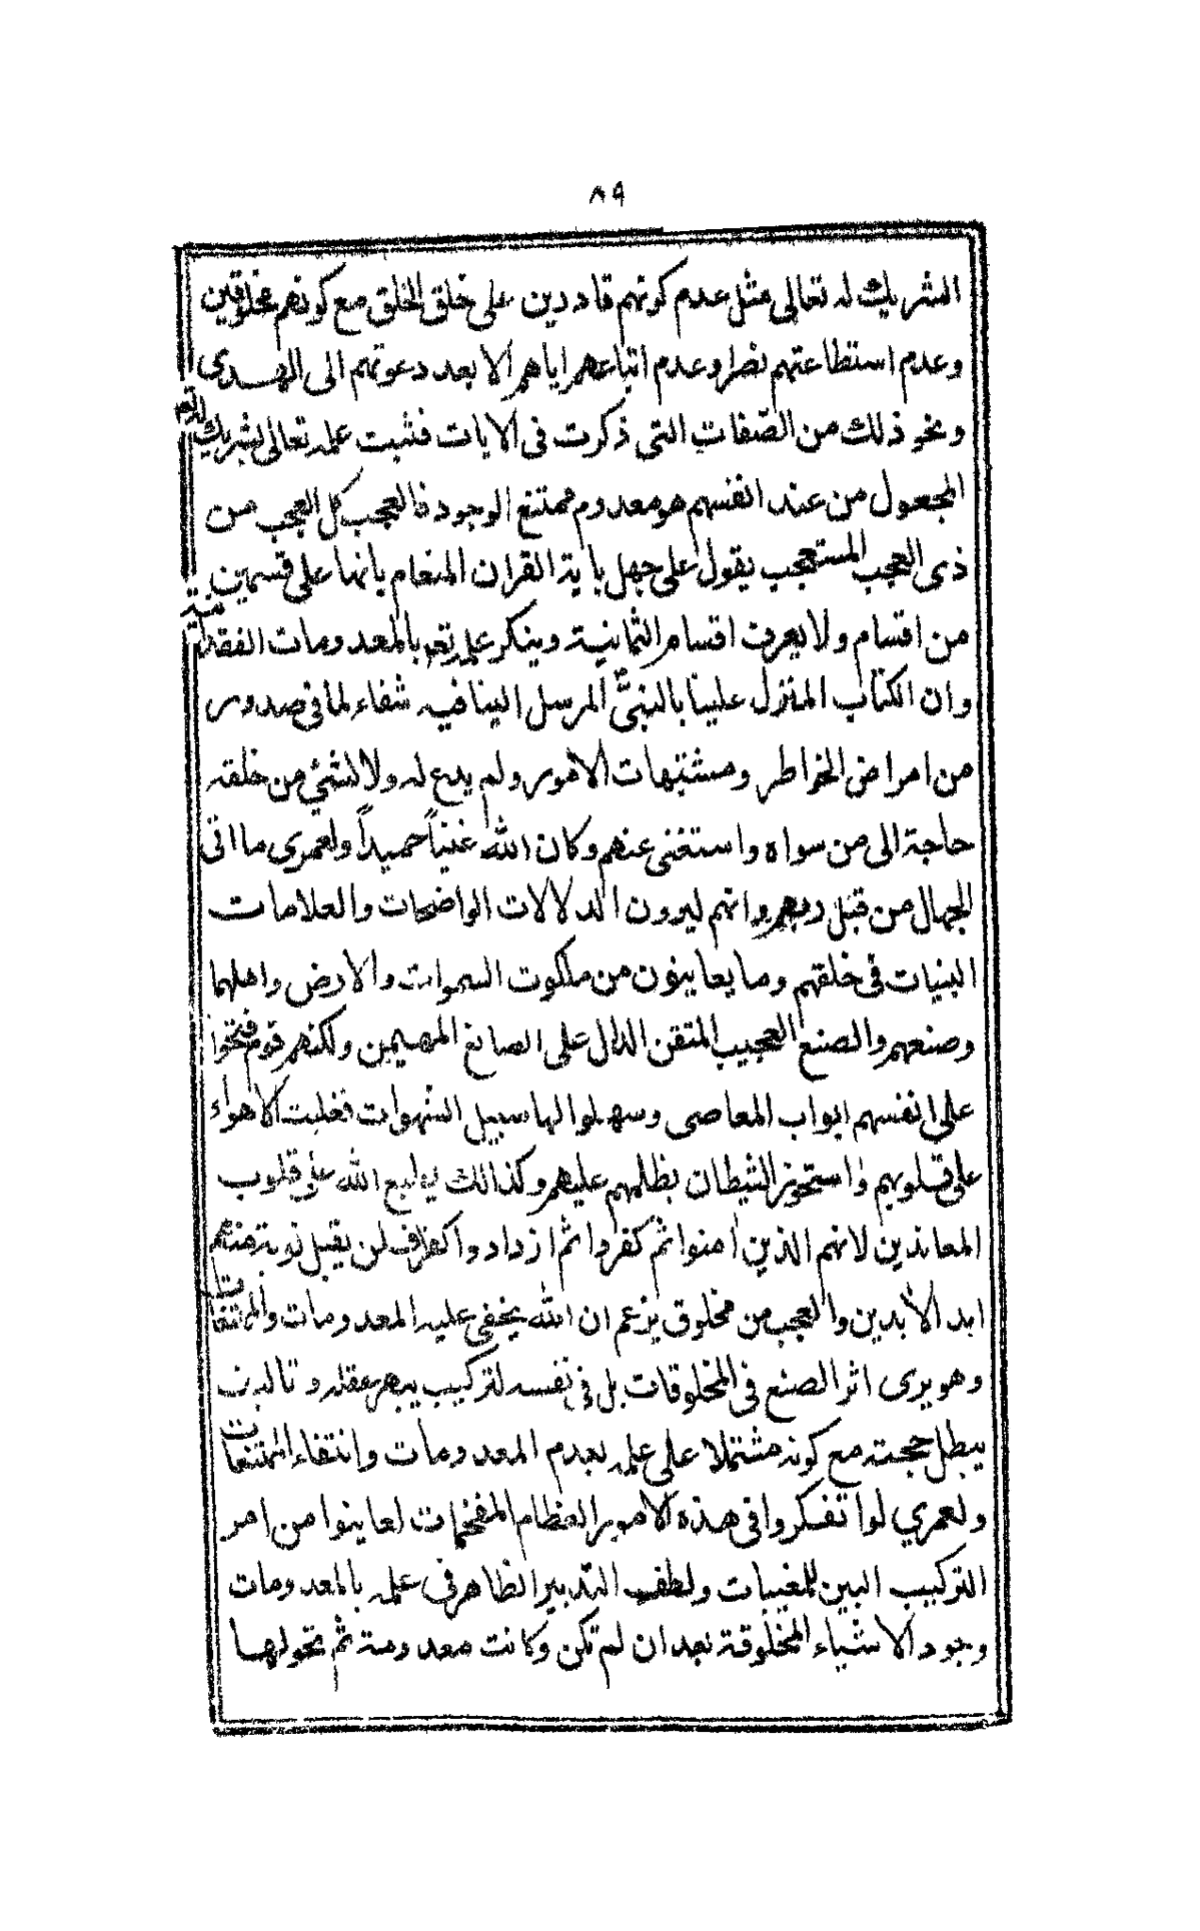 ٨٩
الشريك له تعالى مثل عدم كونهم قادرين على خلق الخلق مع كونهم مخلوقين
وعدم استطاعتهم نصرا وعدم اتباعهم اياهم الا بعد دعوتهم الى الهدى
ونحو ذلك من الصّفات التى ذكرت فى الايات فثبت علمه تعالى بشريك
المجعول من عند انفسهم هو معدوم ممتنع الوجود فالعجب كل العجب من
ذى العجب المستعجب يقول على جهل باية القران المنعام بانها على قسمين
من اقسام ولا يعرف اقسام الثمانية وينكر علمه تعه بالمعدومات الفقد
وان الكتاب المنزل علينا بالنبىّ المرسل الينا فيه شفاء لما فى صدور
من امراض الخواطر ومشتبهات الامور ولم يدع له ولا لشئ من خلقه
حاجة الى من سواه واستغنى عنهم وكان الله غنياً حميداً ولعمرى ما اتى
الجهال من قبل ربهم وانهم ليرون الدلالات الواضحات والعلامات
البنيات فى خلقهم وما يعاينون من ملكوت السموات والارض واهلها
وصنعهم والصنع العجيب المتقن الدال على الصانع المهيمن ولكنهم قوم فتحوا
على انفسهم ابواب المعاصى وسهلوا لها سبيل الشهوات فغلبت الاهواء
على قلوبهم واستحوز الشيطان بظلمهم عليهم وكذالك يطبع الله على قلوب
المعاندين لانهم الذين امنوا ثم كفروا ثم ازدادوا كفرا فلن يقبل توبة منهم
ابد الابدين والعجب من مخلوق يزعم ان الله يخفى عليه المعدومات والممتنعات
وهو يرى اثر الصنع فى المخلوقات بل فى نفسه لتركيب يبهر عقله وتالدف
يبطل حجته مع كونه مشتملا على علمه بعدم المعدومات وانتفاء الممتنعات
ولعمري لو اتفكروا فى هذه الامور العظام المفخمات لعاينوا من امر
التركيب البين للمغيبات ولطف التدبير الظاهر فى علمه بالمعدومات
وجود الاشياء المخلوقة بعد ان لم تكن وكانت معدومة ثم تحولها